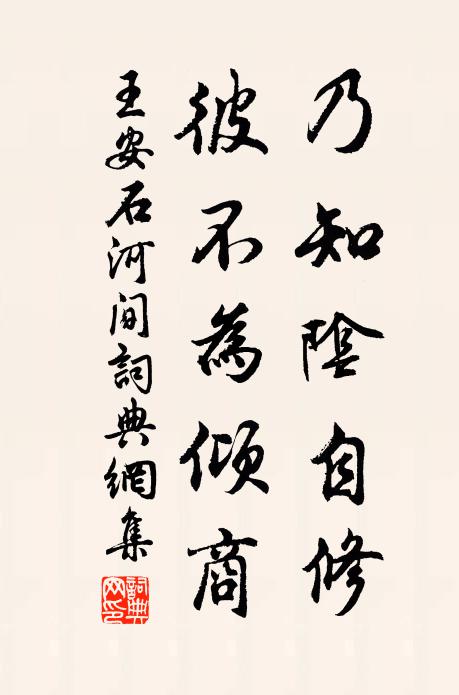 乃知陰自修
彼不為傾商
王安石河間詞典網集
詞典網印